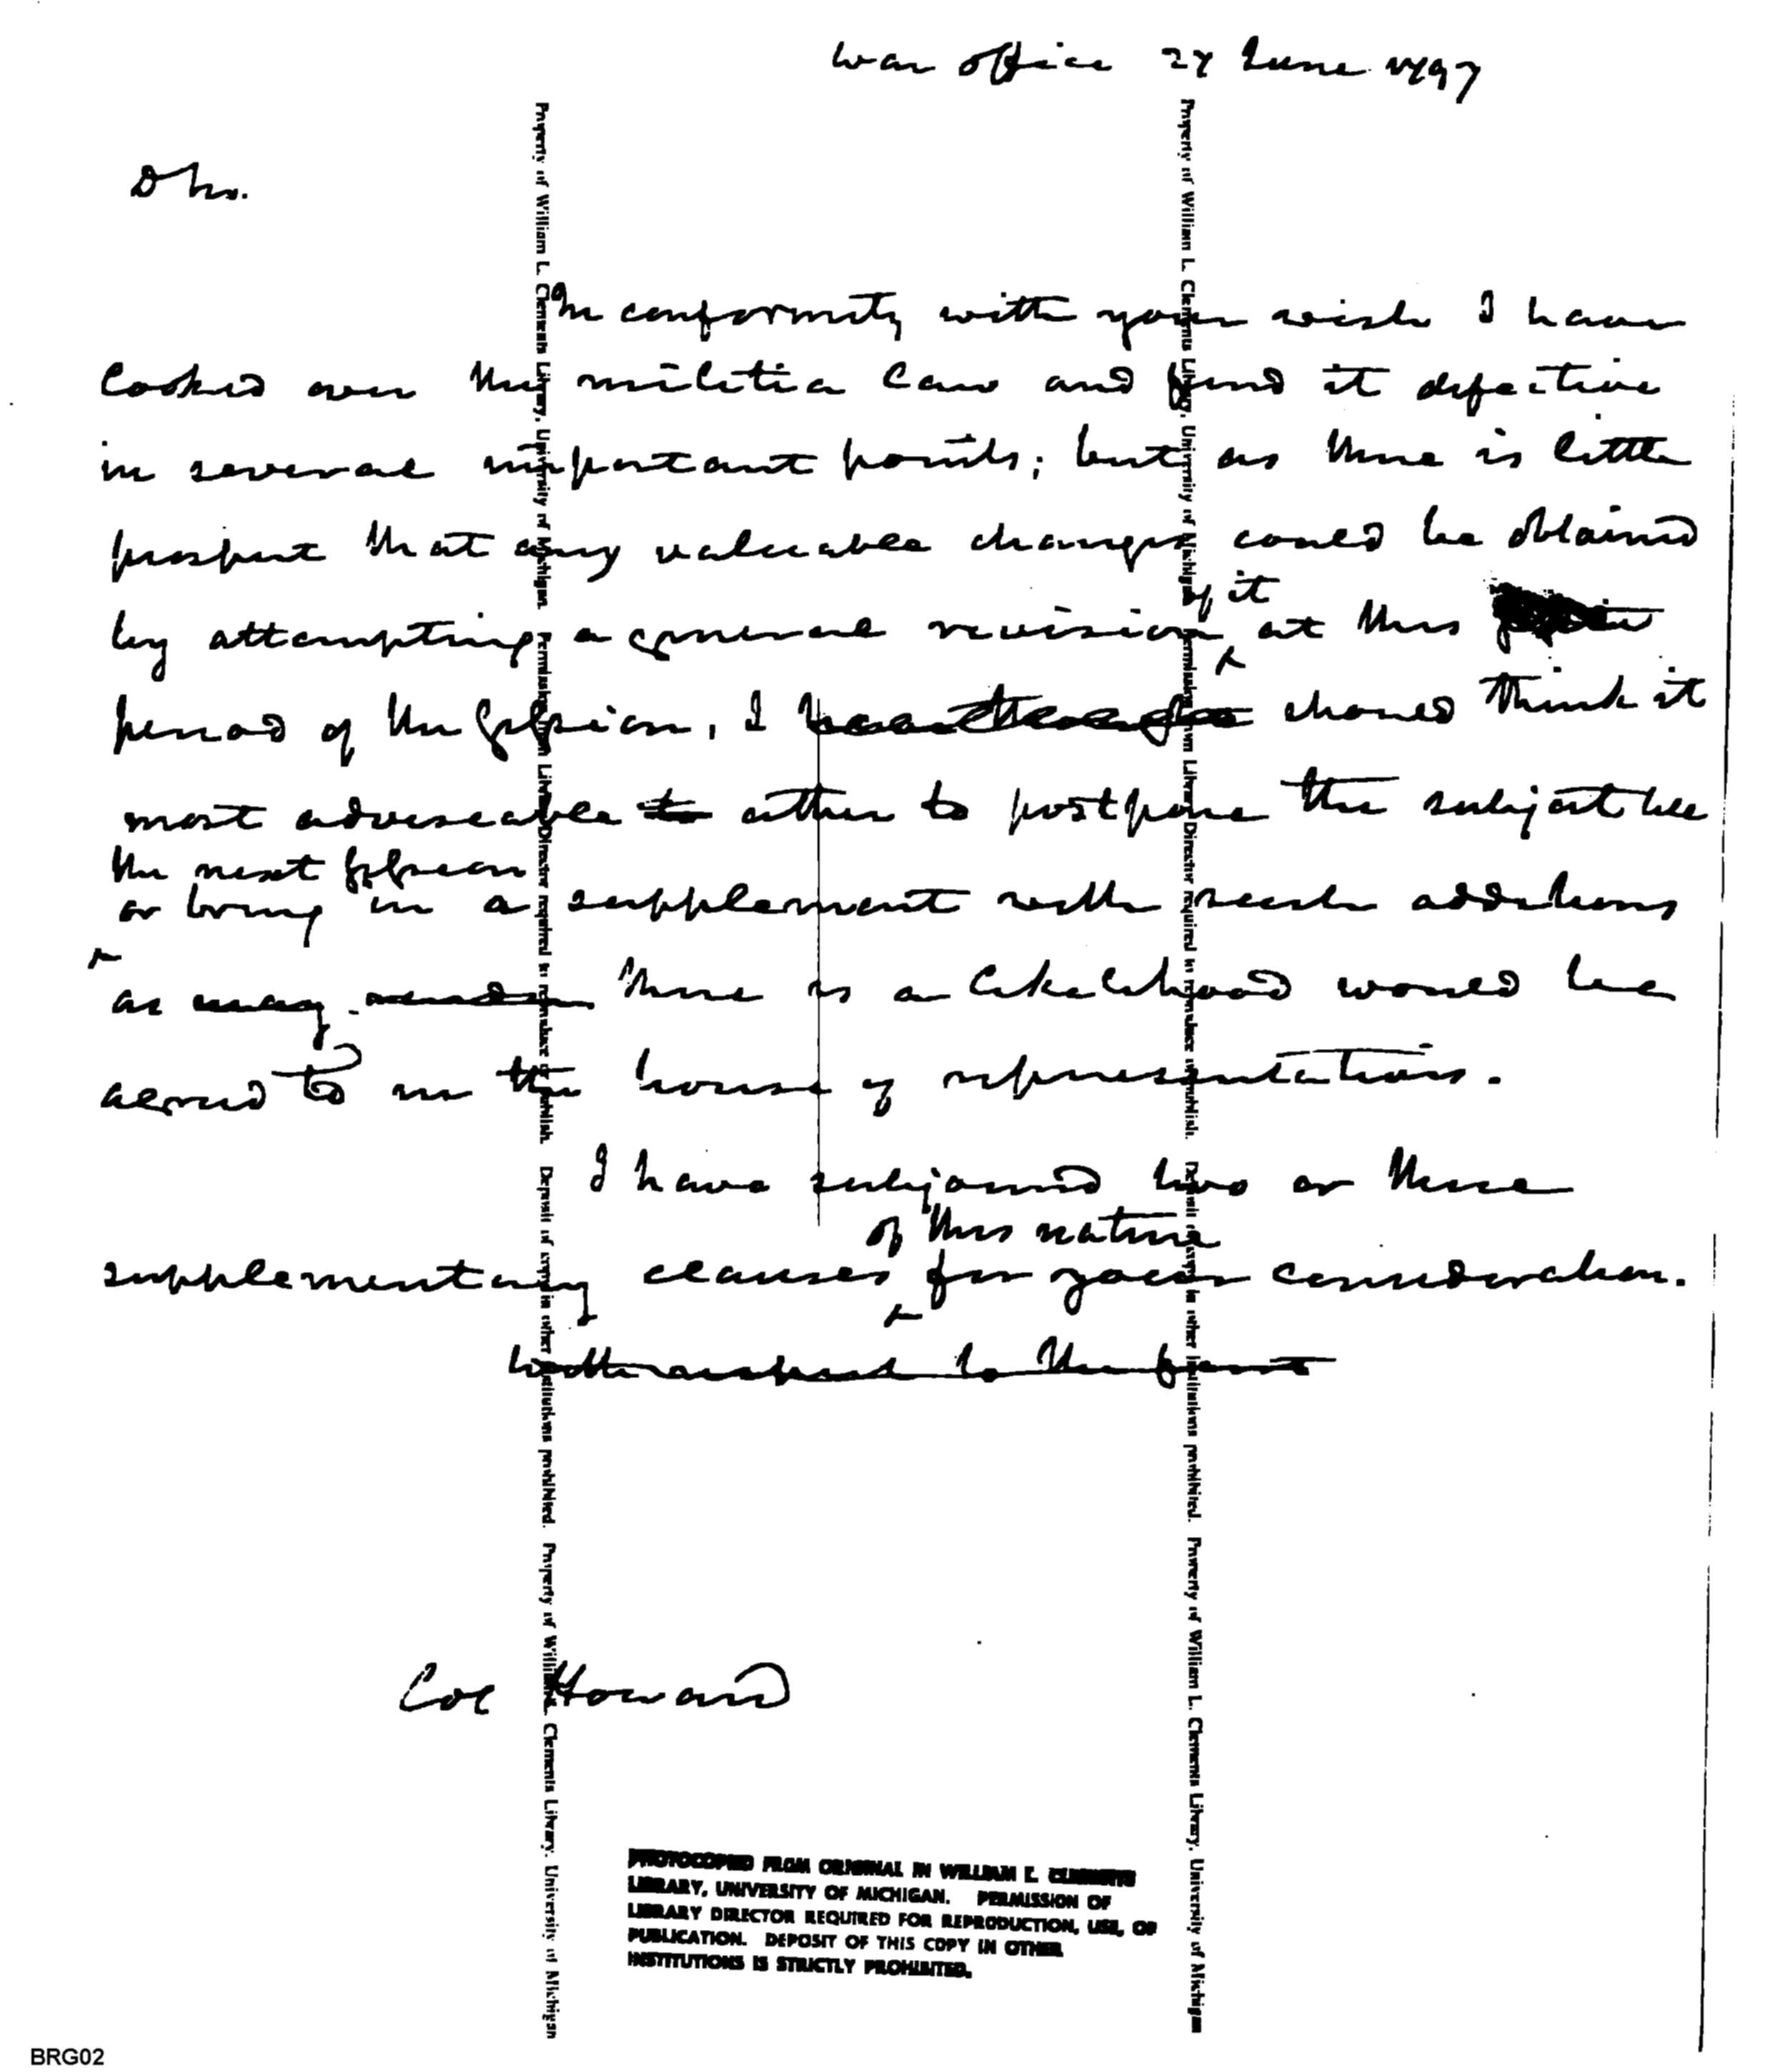 War office 27 June 1797
D Sir.
In conformity with your wish I have
looked over the militia law and find it defective
in several important points; but as there is little
prospect that any valuable changes could be obtained
of it
by attempting a general revision at this
period of the session, I should think it
most adviseable to either to postpone the subject till
the next session
or bring in a supplement with such additions
as may there is a likelihood would be
agreed to in the house of representatives.
I have subjoined two or three
of this nature
supplementary clauses for your consideration.
with respect to the first
Col Howard
PHOTOCOPIED FROM ORIGINAL IN WILLIAM L. CLEMENTS
LIBRARY, UNIVERSITY OF MICHIGAN. PERMISSION OF
LIBRARY DIRECTOR REQUIRED FOR REPRODUCTION, USE, OR
PUBLICATION. DEPOSIT OF THIS COPY IN OTHER
INSTITUTIONS IS STRICTLY PROHIBITED.
Property of William L. Clements Library, University of Michigan. Permission from Library Director required to reproduce or publish. Deposit of copy in other institutions prohibited. Property of William L. Clements Library, University of Michigan
Property of William L. Clements Library, University of Michigan. Permission from Library Director required to reproduce or publish. Deposit of copy in other institutions prohibited. Property of William L. Clements Library, University of Michigan
BRG02